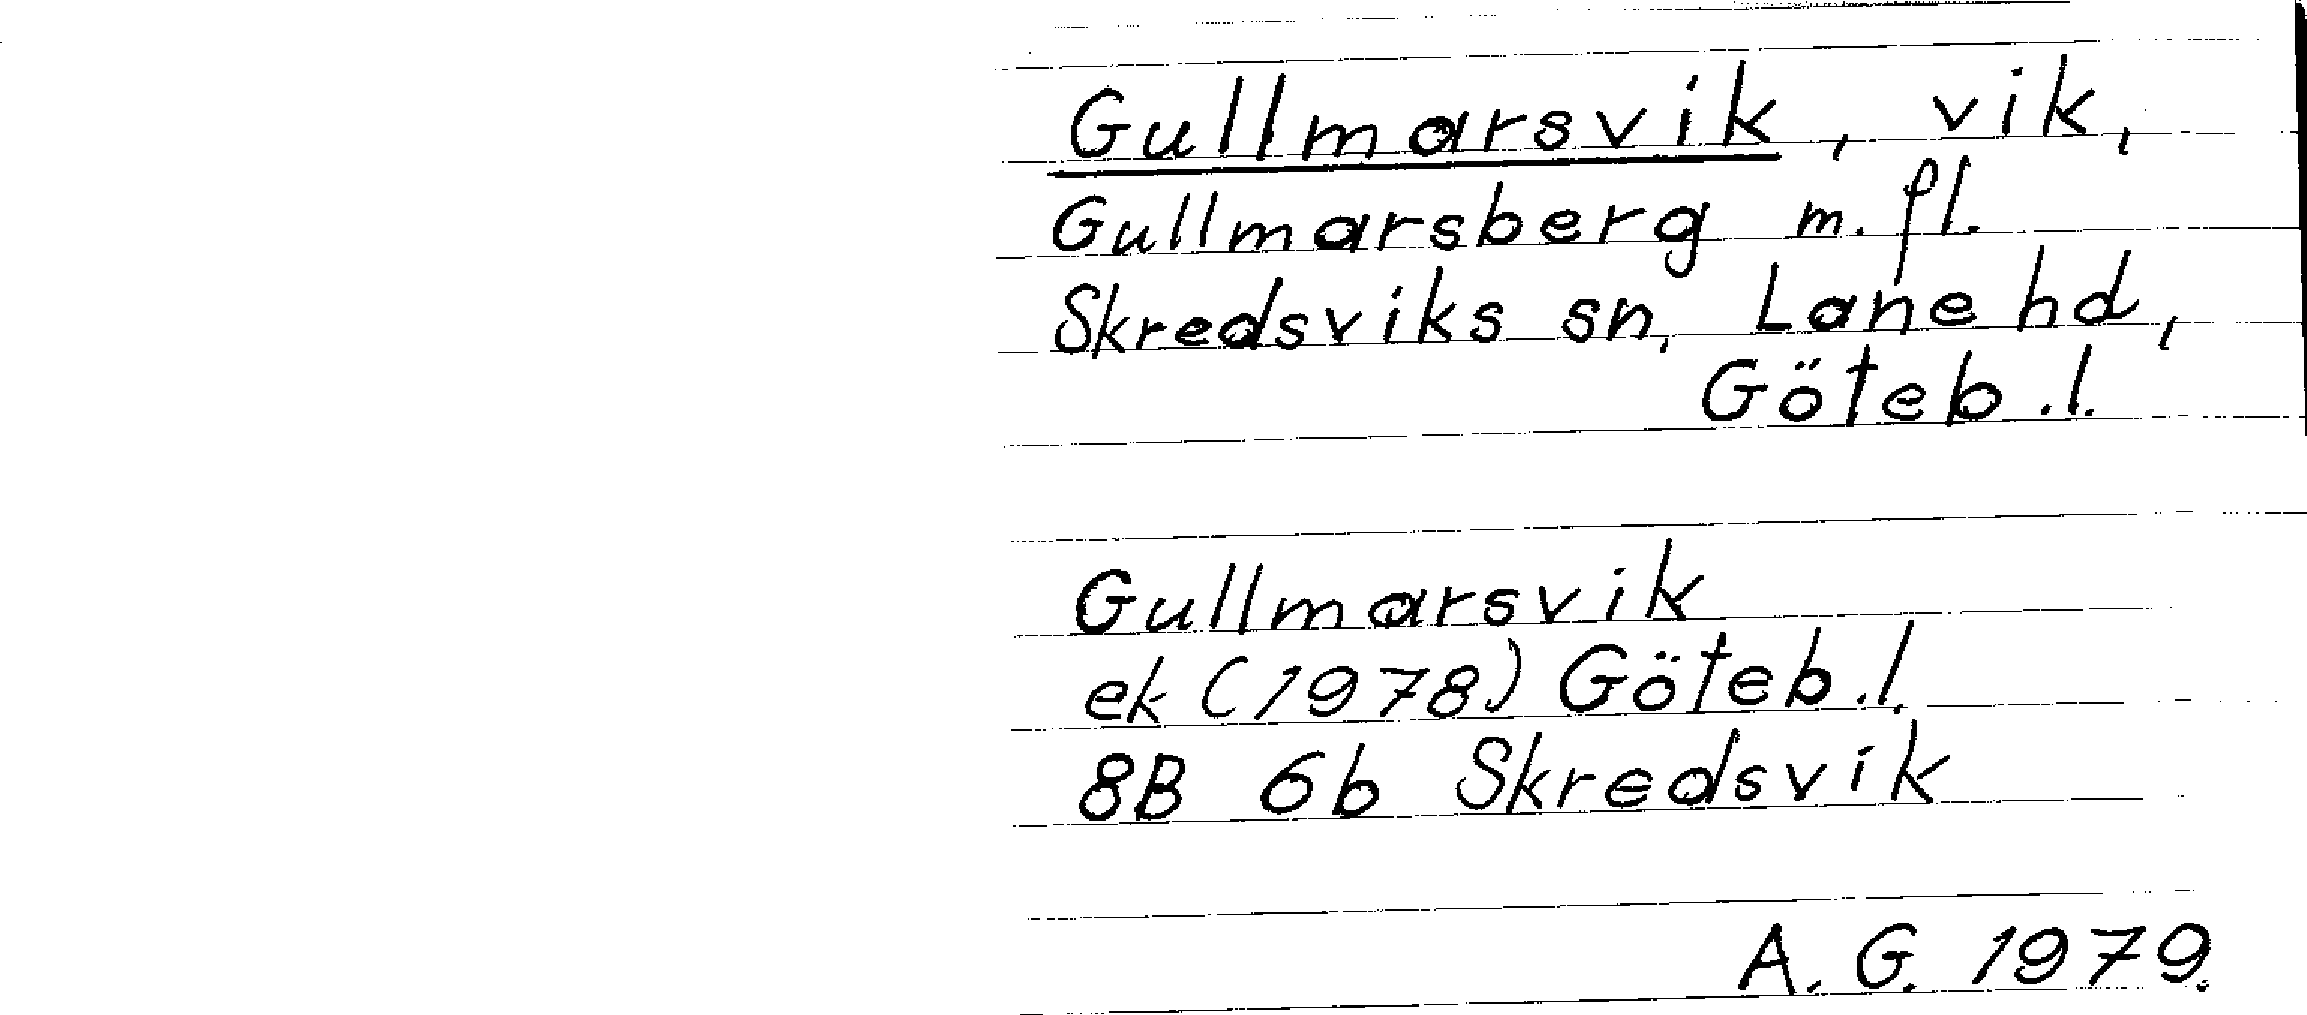 Gullmarsvik, vik,
Gullmarsberg m.fl.
Skredsviks sn, Lane hd,
Göteb.l.
Gullmarsvik
ek (1978) Göteb.l.
8B 6b Skredsvik
A.G. 1979.